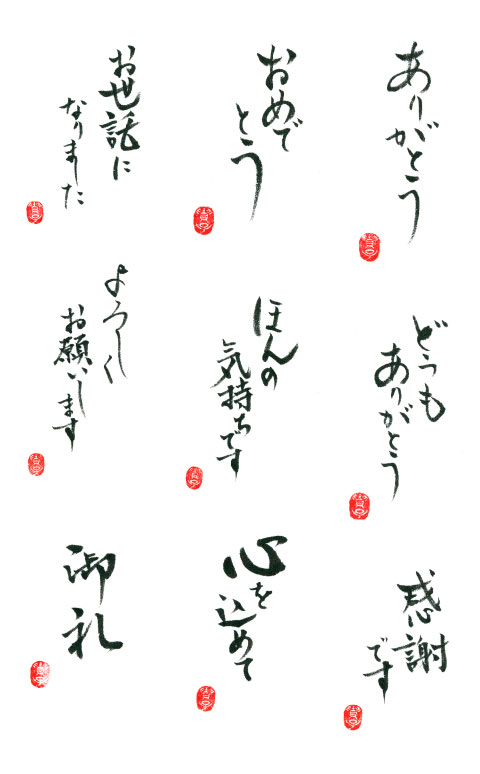 ありがとう
おめで
とう
お世話に
なりました
どうも
ありがとう
ほんの
気持ちです
よろしく
お願いします
感謝
です
心を
込めて
御礼